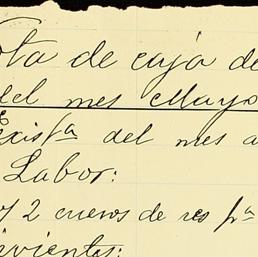 ota de caja de
del mes Mayo
Existª del mes a
Labor:
2 cueros de res pª
ivientes: